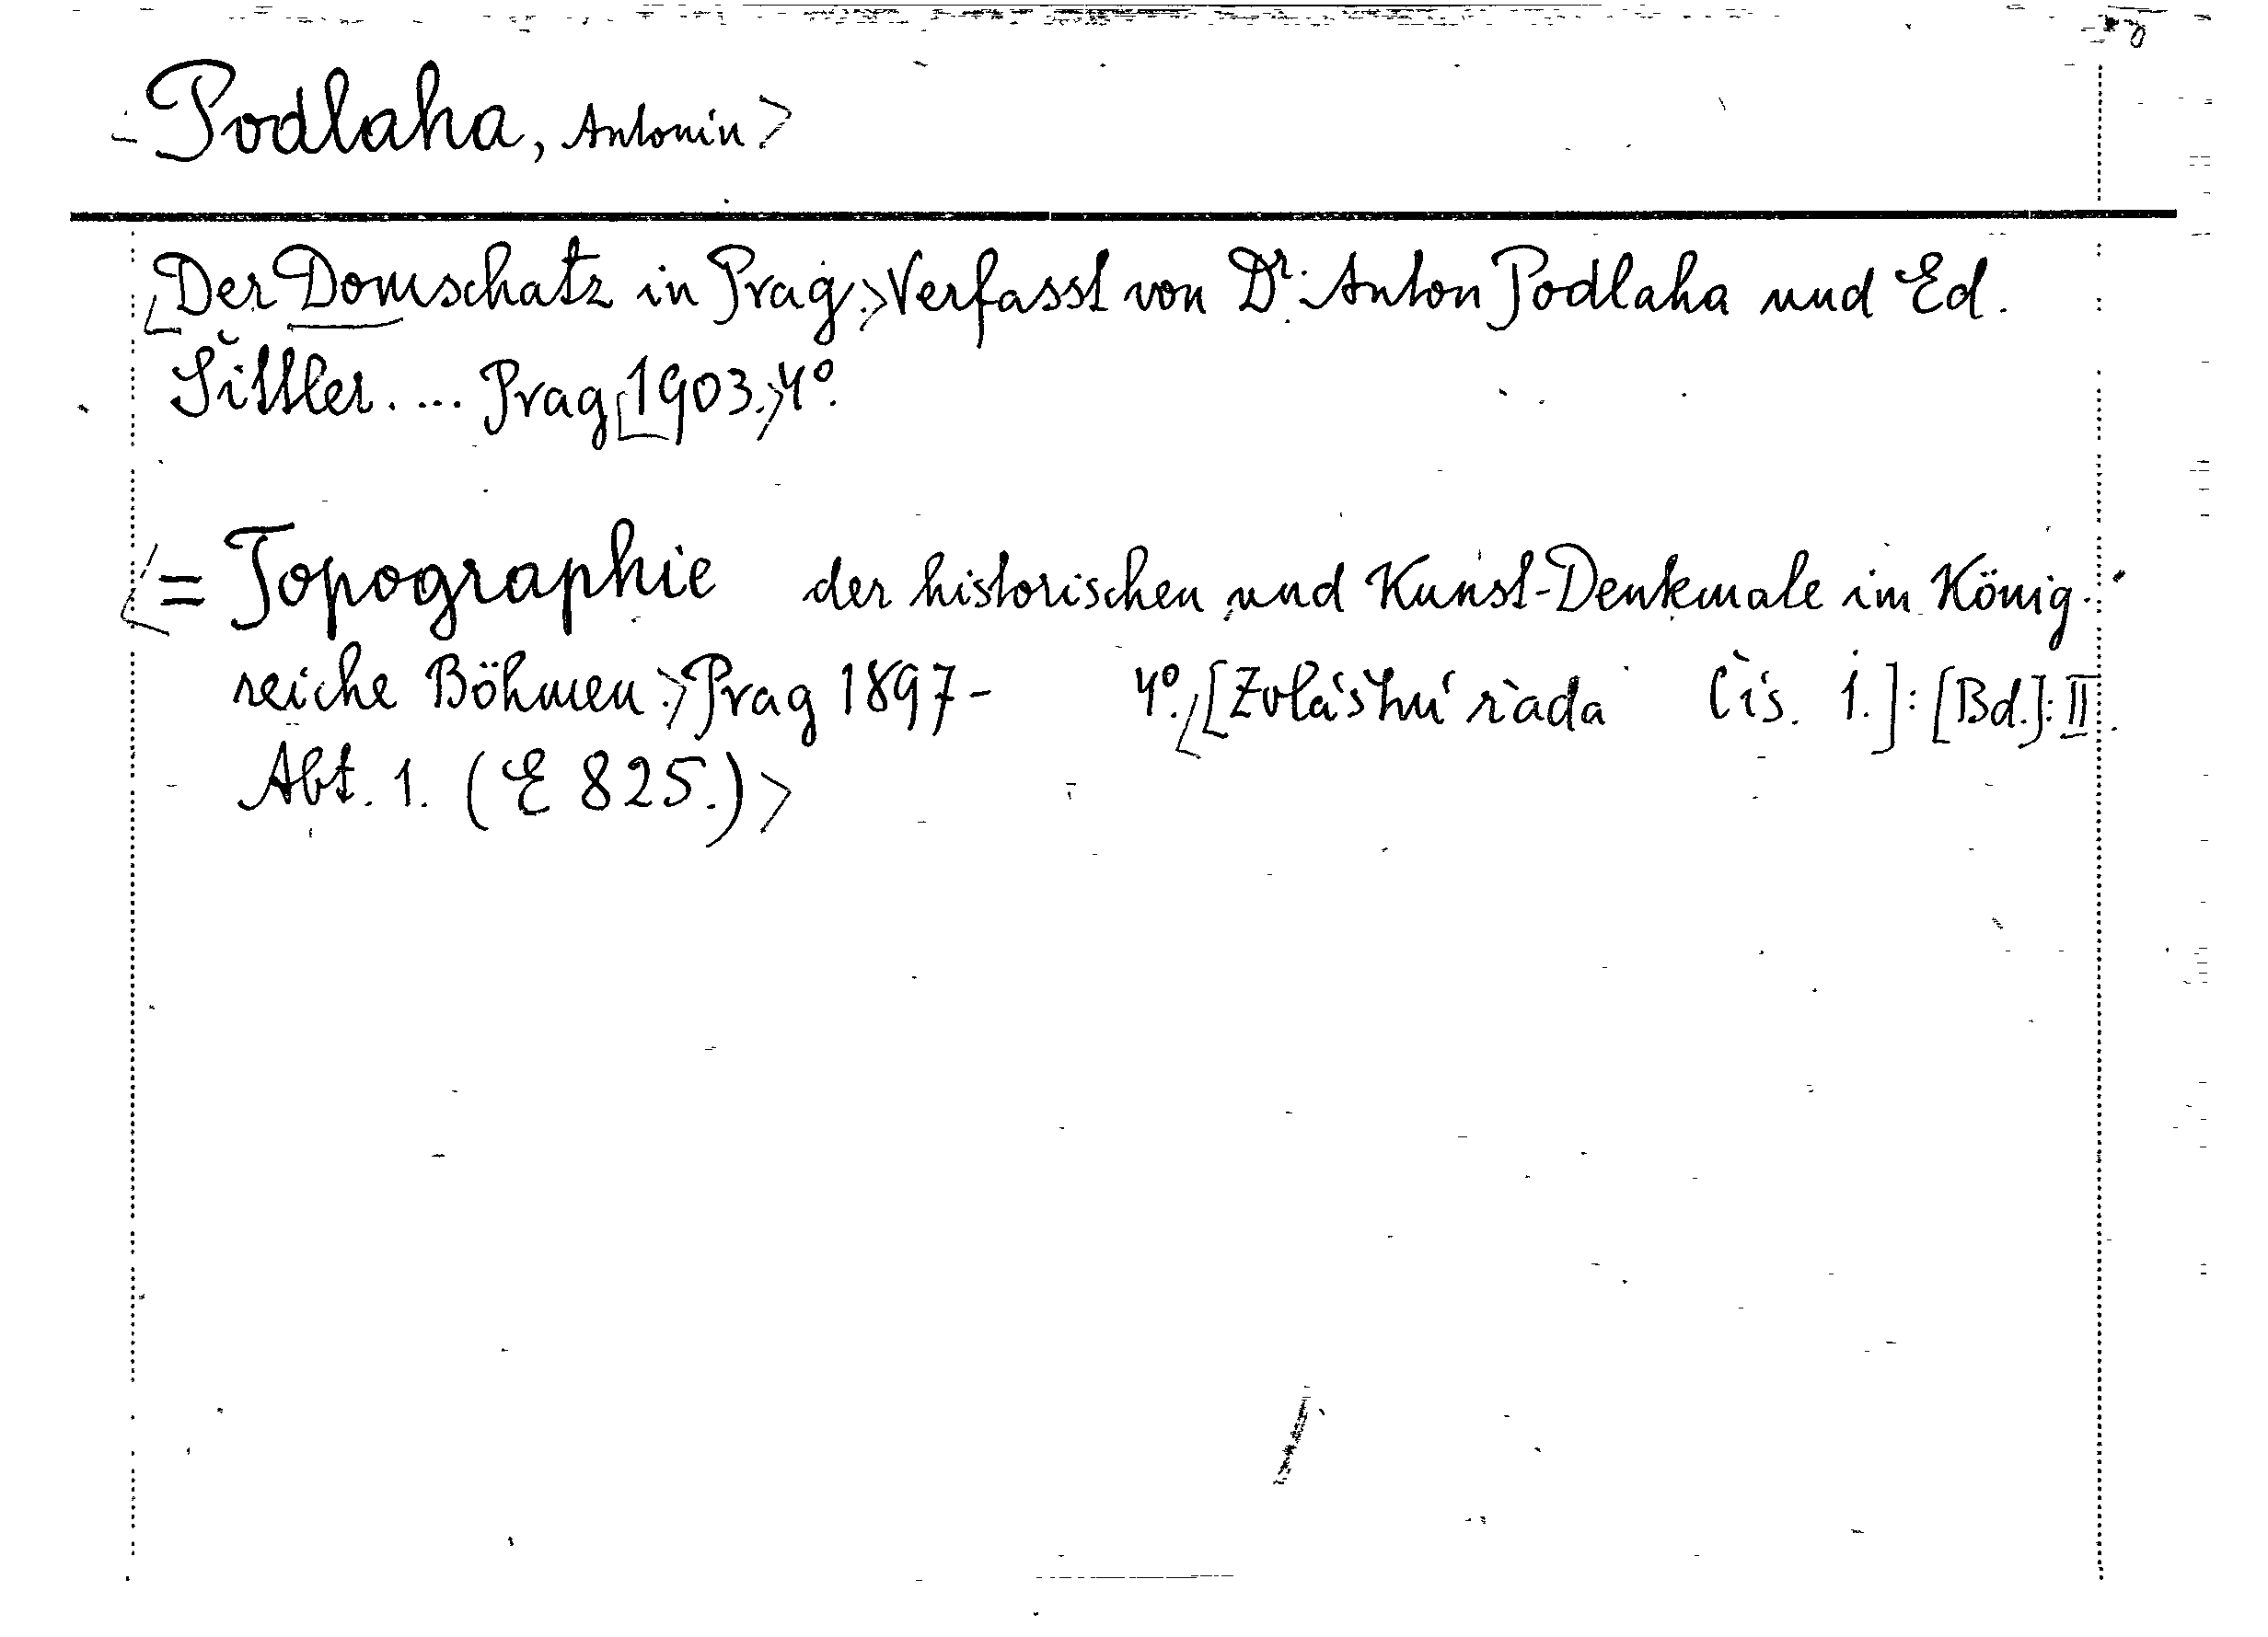 Podlaha, Antonin>
Der Domschatz in Prag.> Verfasst von Dr. Anton Podlaha und Ed.
Šittler. ... Prag 1903.> 4°.
= Topographie der historischen und Kunst-Denkmale im König-
reiche Böhmen.> Prag 1897- 4°. [Zvláštní řada Čis. 1.]: [Bd.]: II.
Abt. 1. (E 825.)>